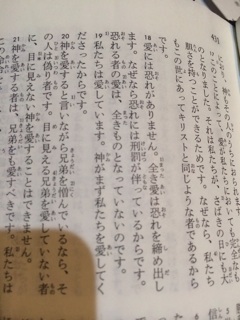 神もその人のうちにおられま
によって、愛が私
においても完全な
のとなりました。それは私たちが、さばきの日にも大
胆さを持つことができるためです。なぜなら、私たち
もこの世にあってキリストと同じような者であるから
です。
18愛には恐れがありません。全き愛は恐れを締め出し
ます。なぜなら恐れには刑罰が伴っているからです。
恐れる者の愛は、全きものとなっていないのです。
19私たちは愛しています。神がまず私たちを愛してく
ださったからです。
20神を愛すると言いながら兄弟を憎んでいるなら、そ
の人は偽り者です。目に見える兄弟を愛していない者
に、目に見えない神を愛することはできません。
21神を愛する者は、兄弟をも愛すべきです。私たちは